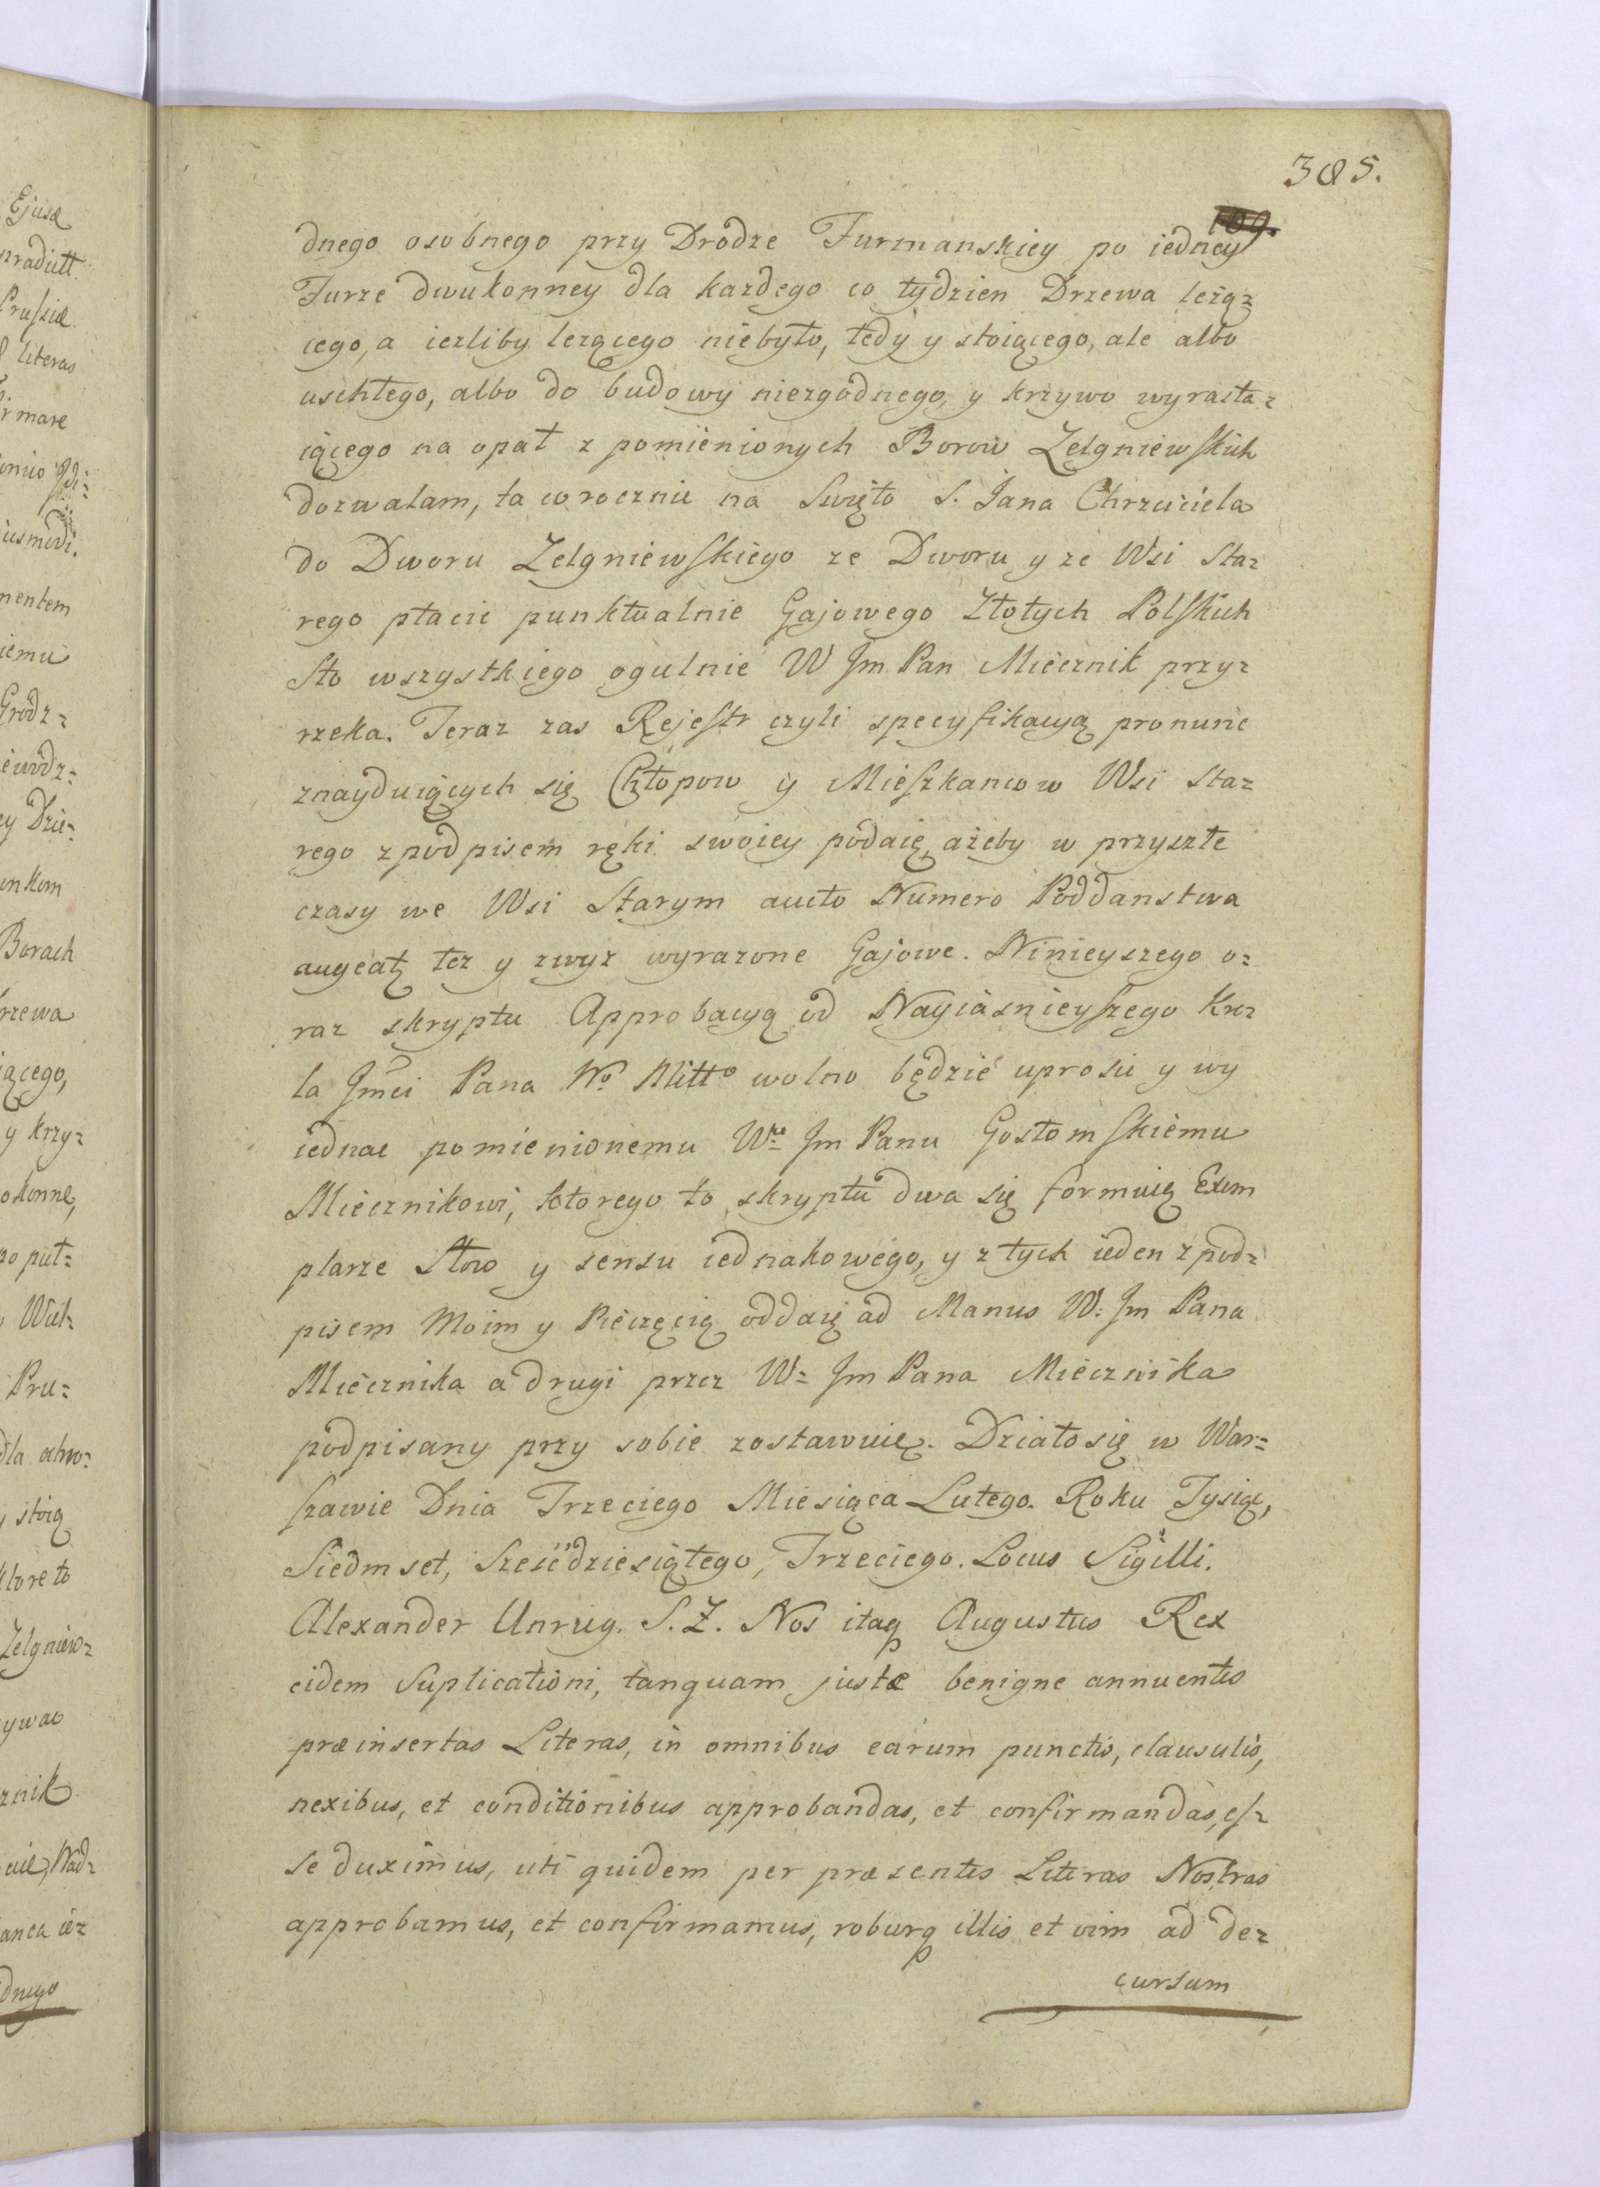 385.
109.
dnego osobnego przy Drodze Furmanskiey po iedney
Furze dwukonney dla kazdego co tydzien Drzewa leżą=
cego, a iezliby lezącego niebyło, tedy y stoiącego, ale albo
uschłego, albo do budowy niezgodnego, y krzywo wyrasta=
iącego na opał z pomienionych Borow Zelgniewskich
dozwalam, ta corocznie na Swięto S. Jana Chrzciciela
do Dworu Zelgniewskiego ze Dworu y ze Wsi Sta=
rego płacic punktualnie Gajowego Złotych Polskich
Sto wszystkiego ogulnie W Jm Pan Miecznik przy=
rzeka. Teraz zas Rejestr czyli specyfikacyą pro nunc
znayduiących się Chłopow y Mieszkancow Wsi Sta=
rego z podpisem ręki swoiey podaię, ażeby w przyszłe
czasy we Wsi Starym aucto Numero Poddanstwa
augeatz tez y zwyz wyrazone Gajowe. Ninieyszego o=
raz skryptu Approbacyą od Nayiasnieyszego Kro=
la Jmci Pana No Mitto wolno będzie uprosic y wy
iednac pomienionemu Wmu Jm Panu Gostomskiemu
Miecznikowi, ktorego to skryptu dwa się formuią Exem
plarze Słow y sensu iednakowego, y z tych ieden z pod=
pisem Moim y Pieczęcią oddaię ad Manus W: Jm Pana
Miecznika a drugi przez W= Jm Pana Miecznika
podpisany przy sobie zostawuię. Działo się w War=
szawie Dnia Trzeciego Miesiąca Lutego. Roku Tysiąc,
Siedmset, Szesćdziesiątego, Trzeciego. Locus Sigilli.
Alexander Unrug. S. Z. Nos itaq Augustus Rex
eidem Suplicationi, tanquam justæ benigne annuentes
præinsertas Literas, in omnibus earum punctis, clausulis,
nexibus, et conditionibus approbandas, et confirmandas, es=
se duximus, uti quidem per præsentes Literas Nostras
approbamus, et confirmamus, roburq illis et vim ad de=
cursum